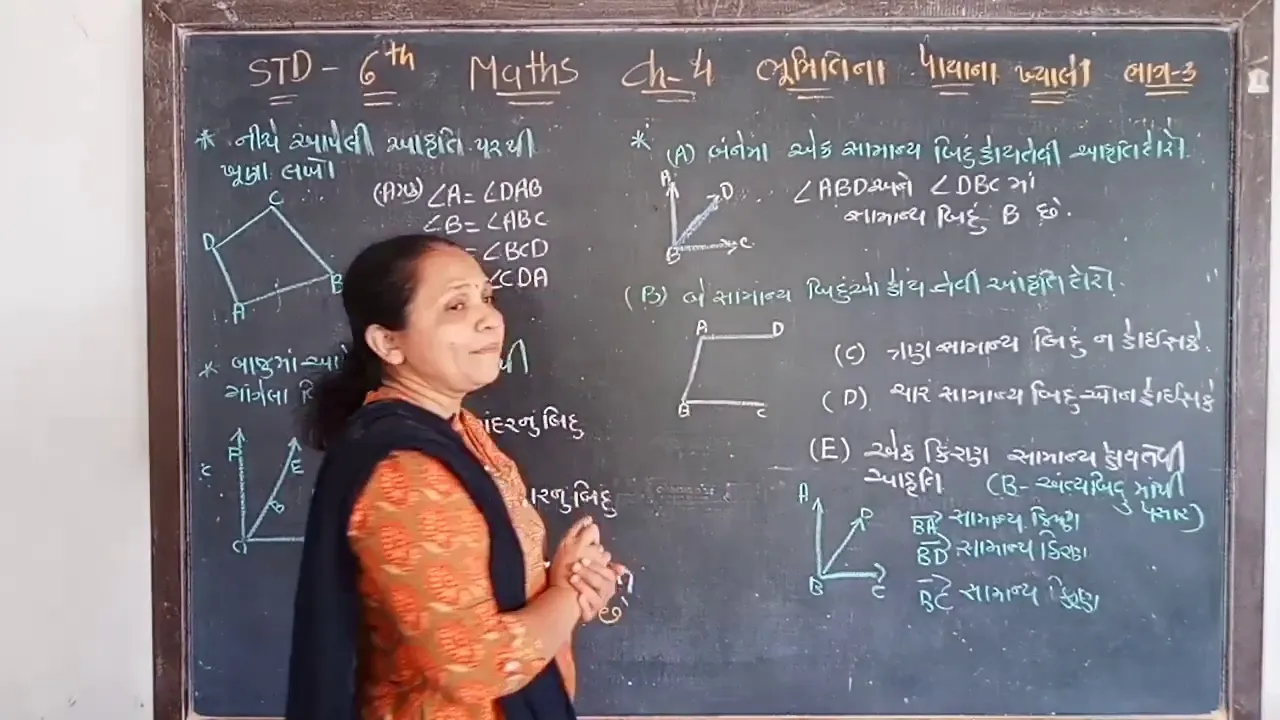 STD - 6th Maths Ch-4 ભૂમિતિના પાયાના ખ્યાલો ભાગ-3
* નીચે આપેલી આકૃતિ પરથી
ખૂણા લખો
∠A = ∠DAB
∠B = ∠ABC
= ∠BCD
∠CDA
C
D
B
A
* બાજુમાં આ
બિંદુ
બિંદુ
P
E
* (A) બંનેમાં એક સામાન્ય બિંદુ હોય તેવી આકૃતિ દોરો.
A
D
B
C
∠ABD અને ∠DBC માં
સામાન્ય બિંદુ B છે.
(B) બે સામાન્ય બિંદુઓ હોય તેવી આકૃતિ દોરો.
A D
B C
(C) ત્રણ સામાન્ય બિંદુ ન હોઈ શકે.
(D) ચાર સામાન્ય બિંદુઓ ન હોઈ શકે
(E) એક કિરણ સામાન્ય હોય તેવી
આકૃતિ (B- અંત્યબિંદુ માંથી
પસાર)
A
D
B C
BA→ સામાન્ય કિરણ
BD→ સામાન્ય કિરણ
BC→ સામાન્ય કિરણ